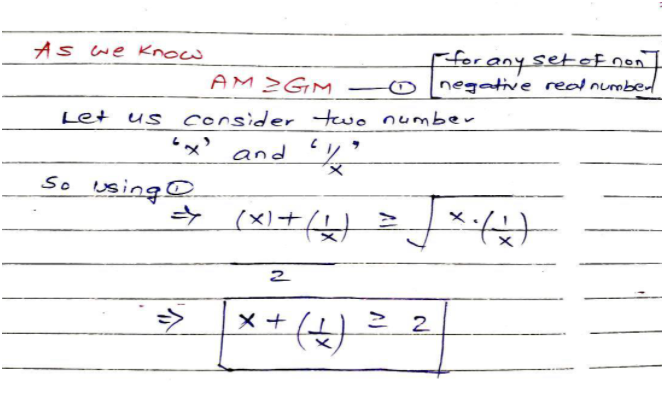 As we know
[for any set of non
AM ≥ GM — ① negative real number]
Let us consider two number
'x' and '1/x'
So using ①
⇒ (x) + (1/x) ≥ √x·(1/x)
2
⇒ x + (1/x) ≥ 2